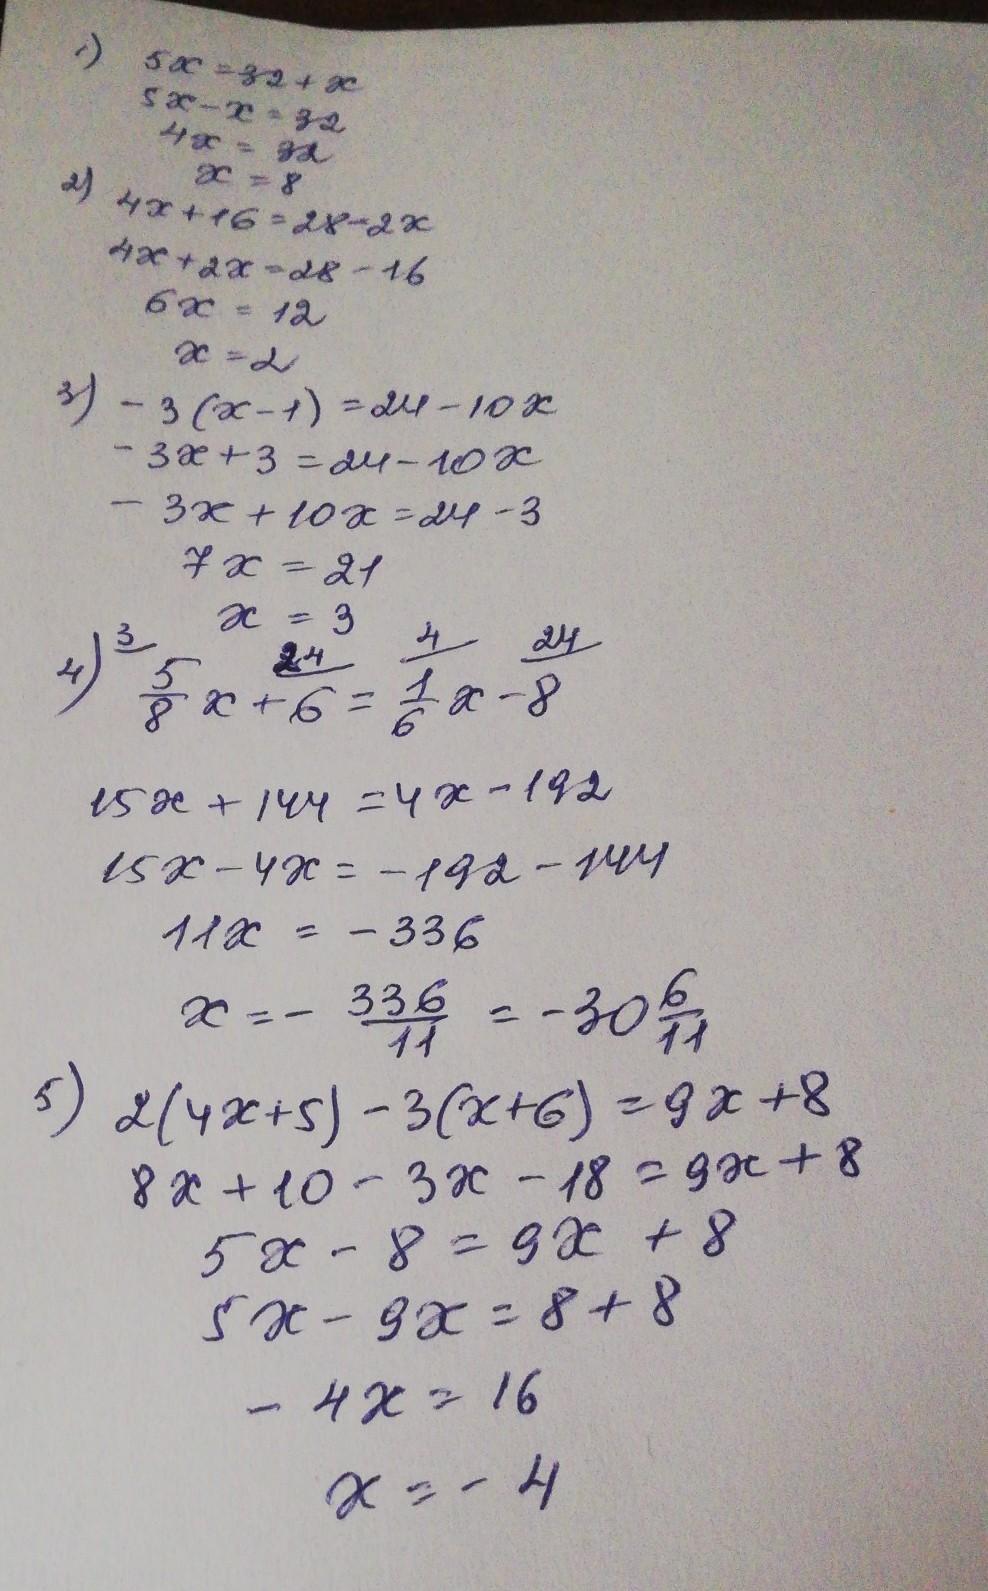 1) 5x = 32 + x
5x - x = 32
4x = 32
x = 8
2) 4x + 16 = 28 - 2x
4x + 2x = 28 - 16
6x = 12
x = 2
3) - 3 (x - 1) = 24 - 10x
- 3x + 3 = 24 - 10x
- 3x + 10x = 24 - 3
7x = 21
x = 3
3 24 4 24
4) 5/8 x + 6 = 1/6 x - 8
15x + 144 = 4x - 192
15x - 4x = - 192 - 144
11x = - 336
x = - 336/11 = - 30 6/11
5) 2(4x + 5) - 3(x + 6) = 9x + 8
8x + 10 - 3x - 18 = 9x + 8
5x - 8 = 9x + 8
5x - 9x = 8 + 8
- 4x = 16
x = - 4